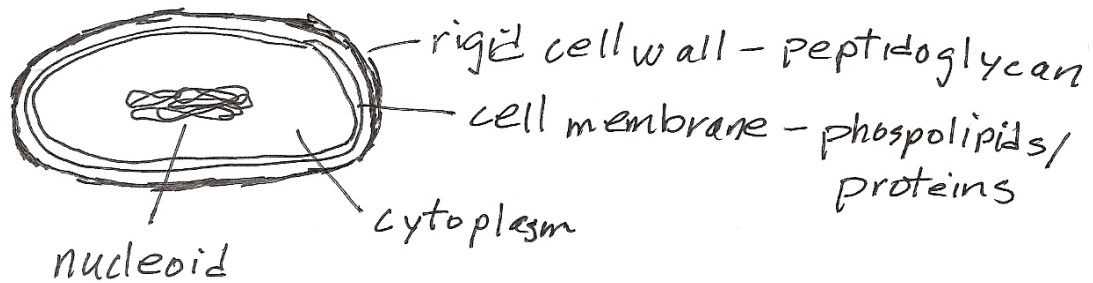 rigid cell wall - peptidoglycan
cell membrane - phospolipids/
proteins
cytoplasm
nucleoid